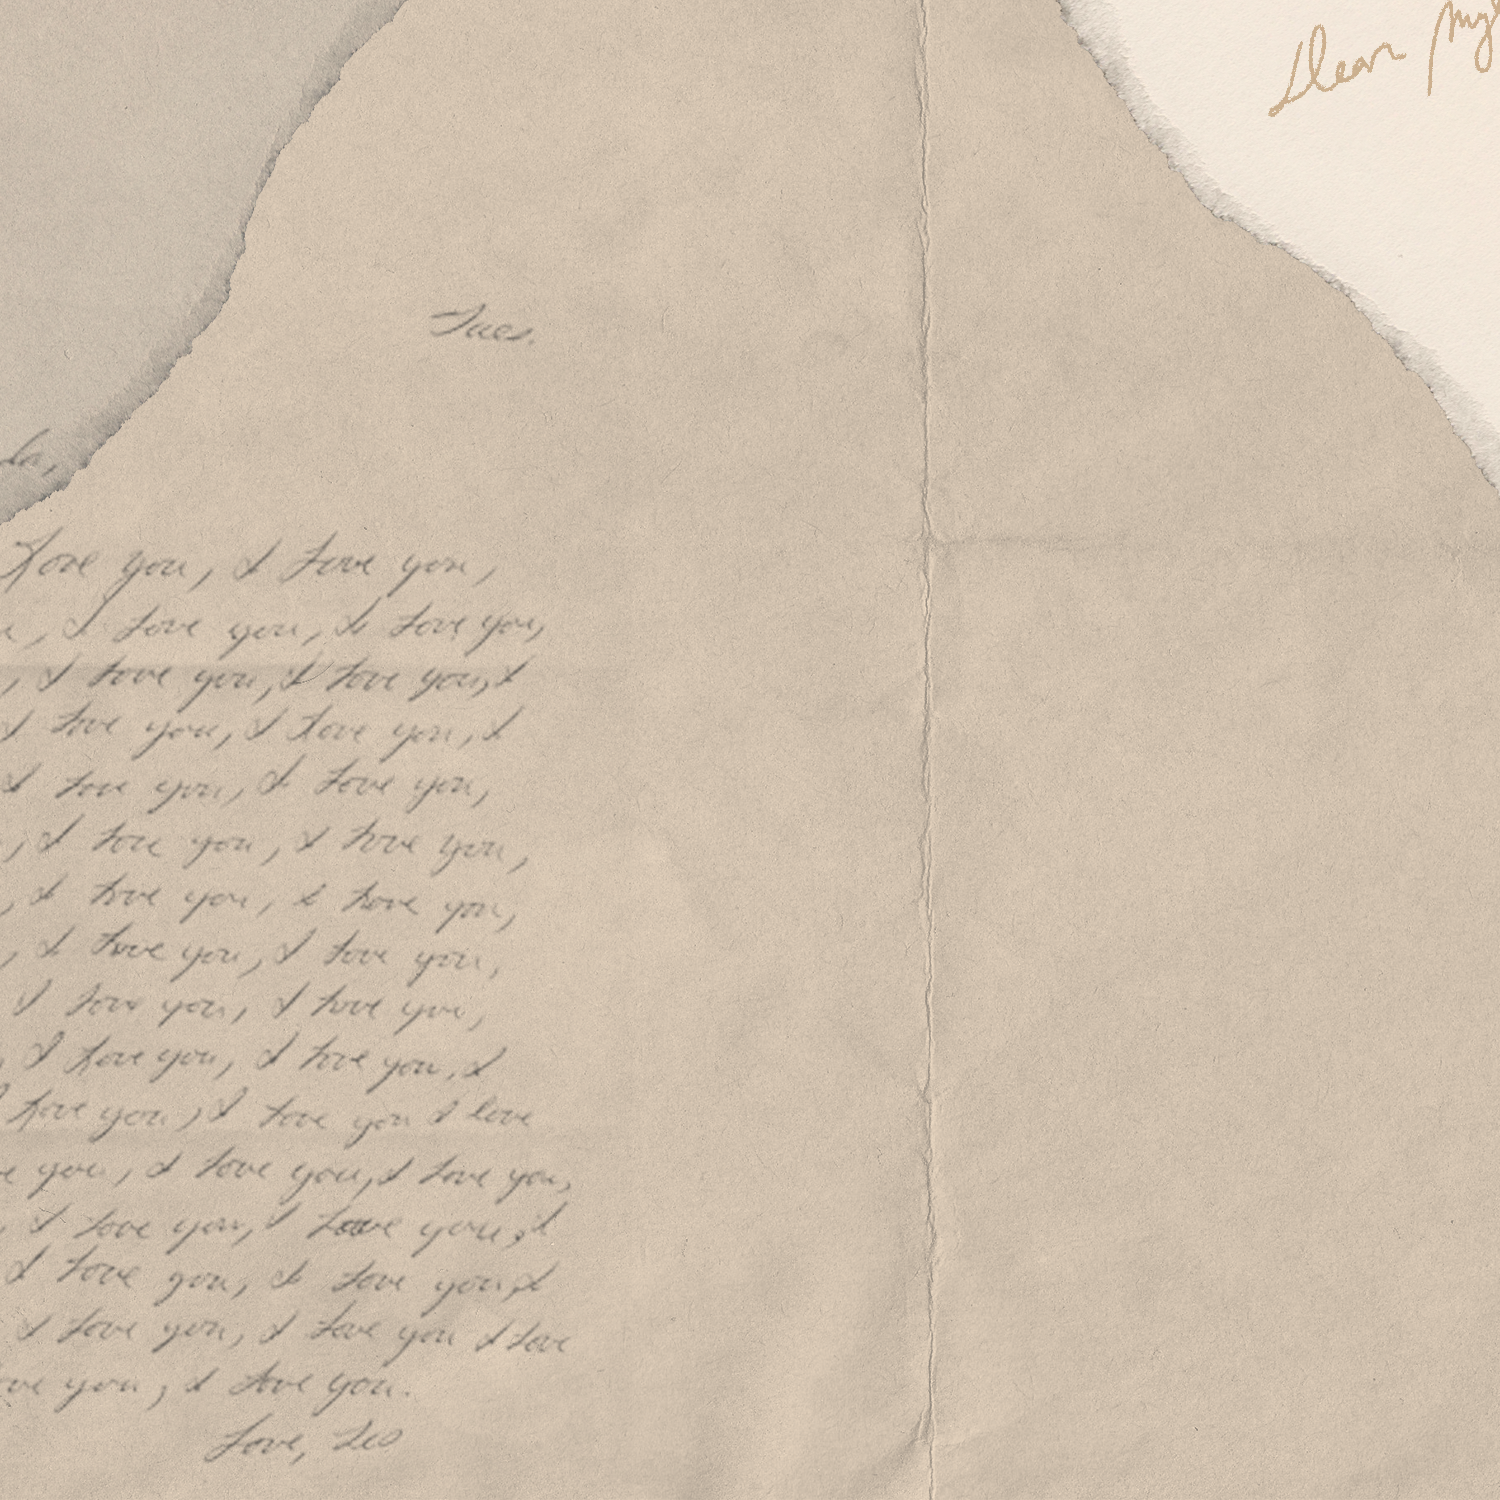 Dear My
Tues.
la,
Love you, I love you,
, I love you, I love you,
, I love you, I love you, I
I love you, I love you, I
I love you, I love you,
, I love you, I love you,
, I love you, I love you,
, I love you, I love you,
I love you, I love you,
, I love you, I love you, I
love you, I love you I love
you, I love you, I love you,
, I love you, I love you, I
I love you, I love you, I
I love you, I love you I love
you, I love you.
Love, Leo